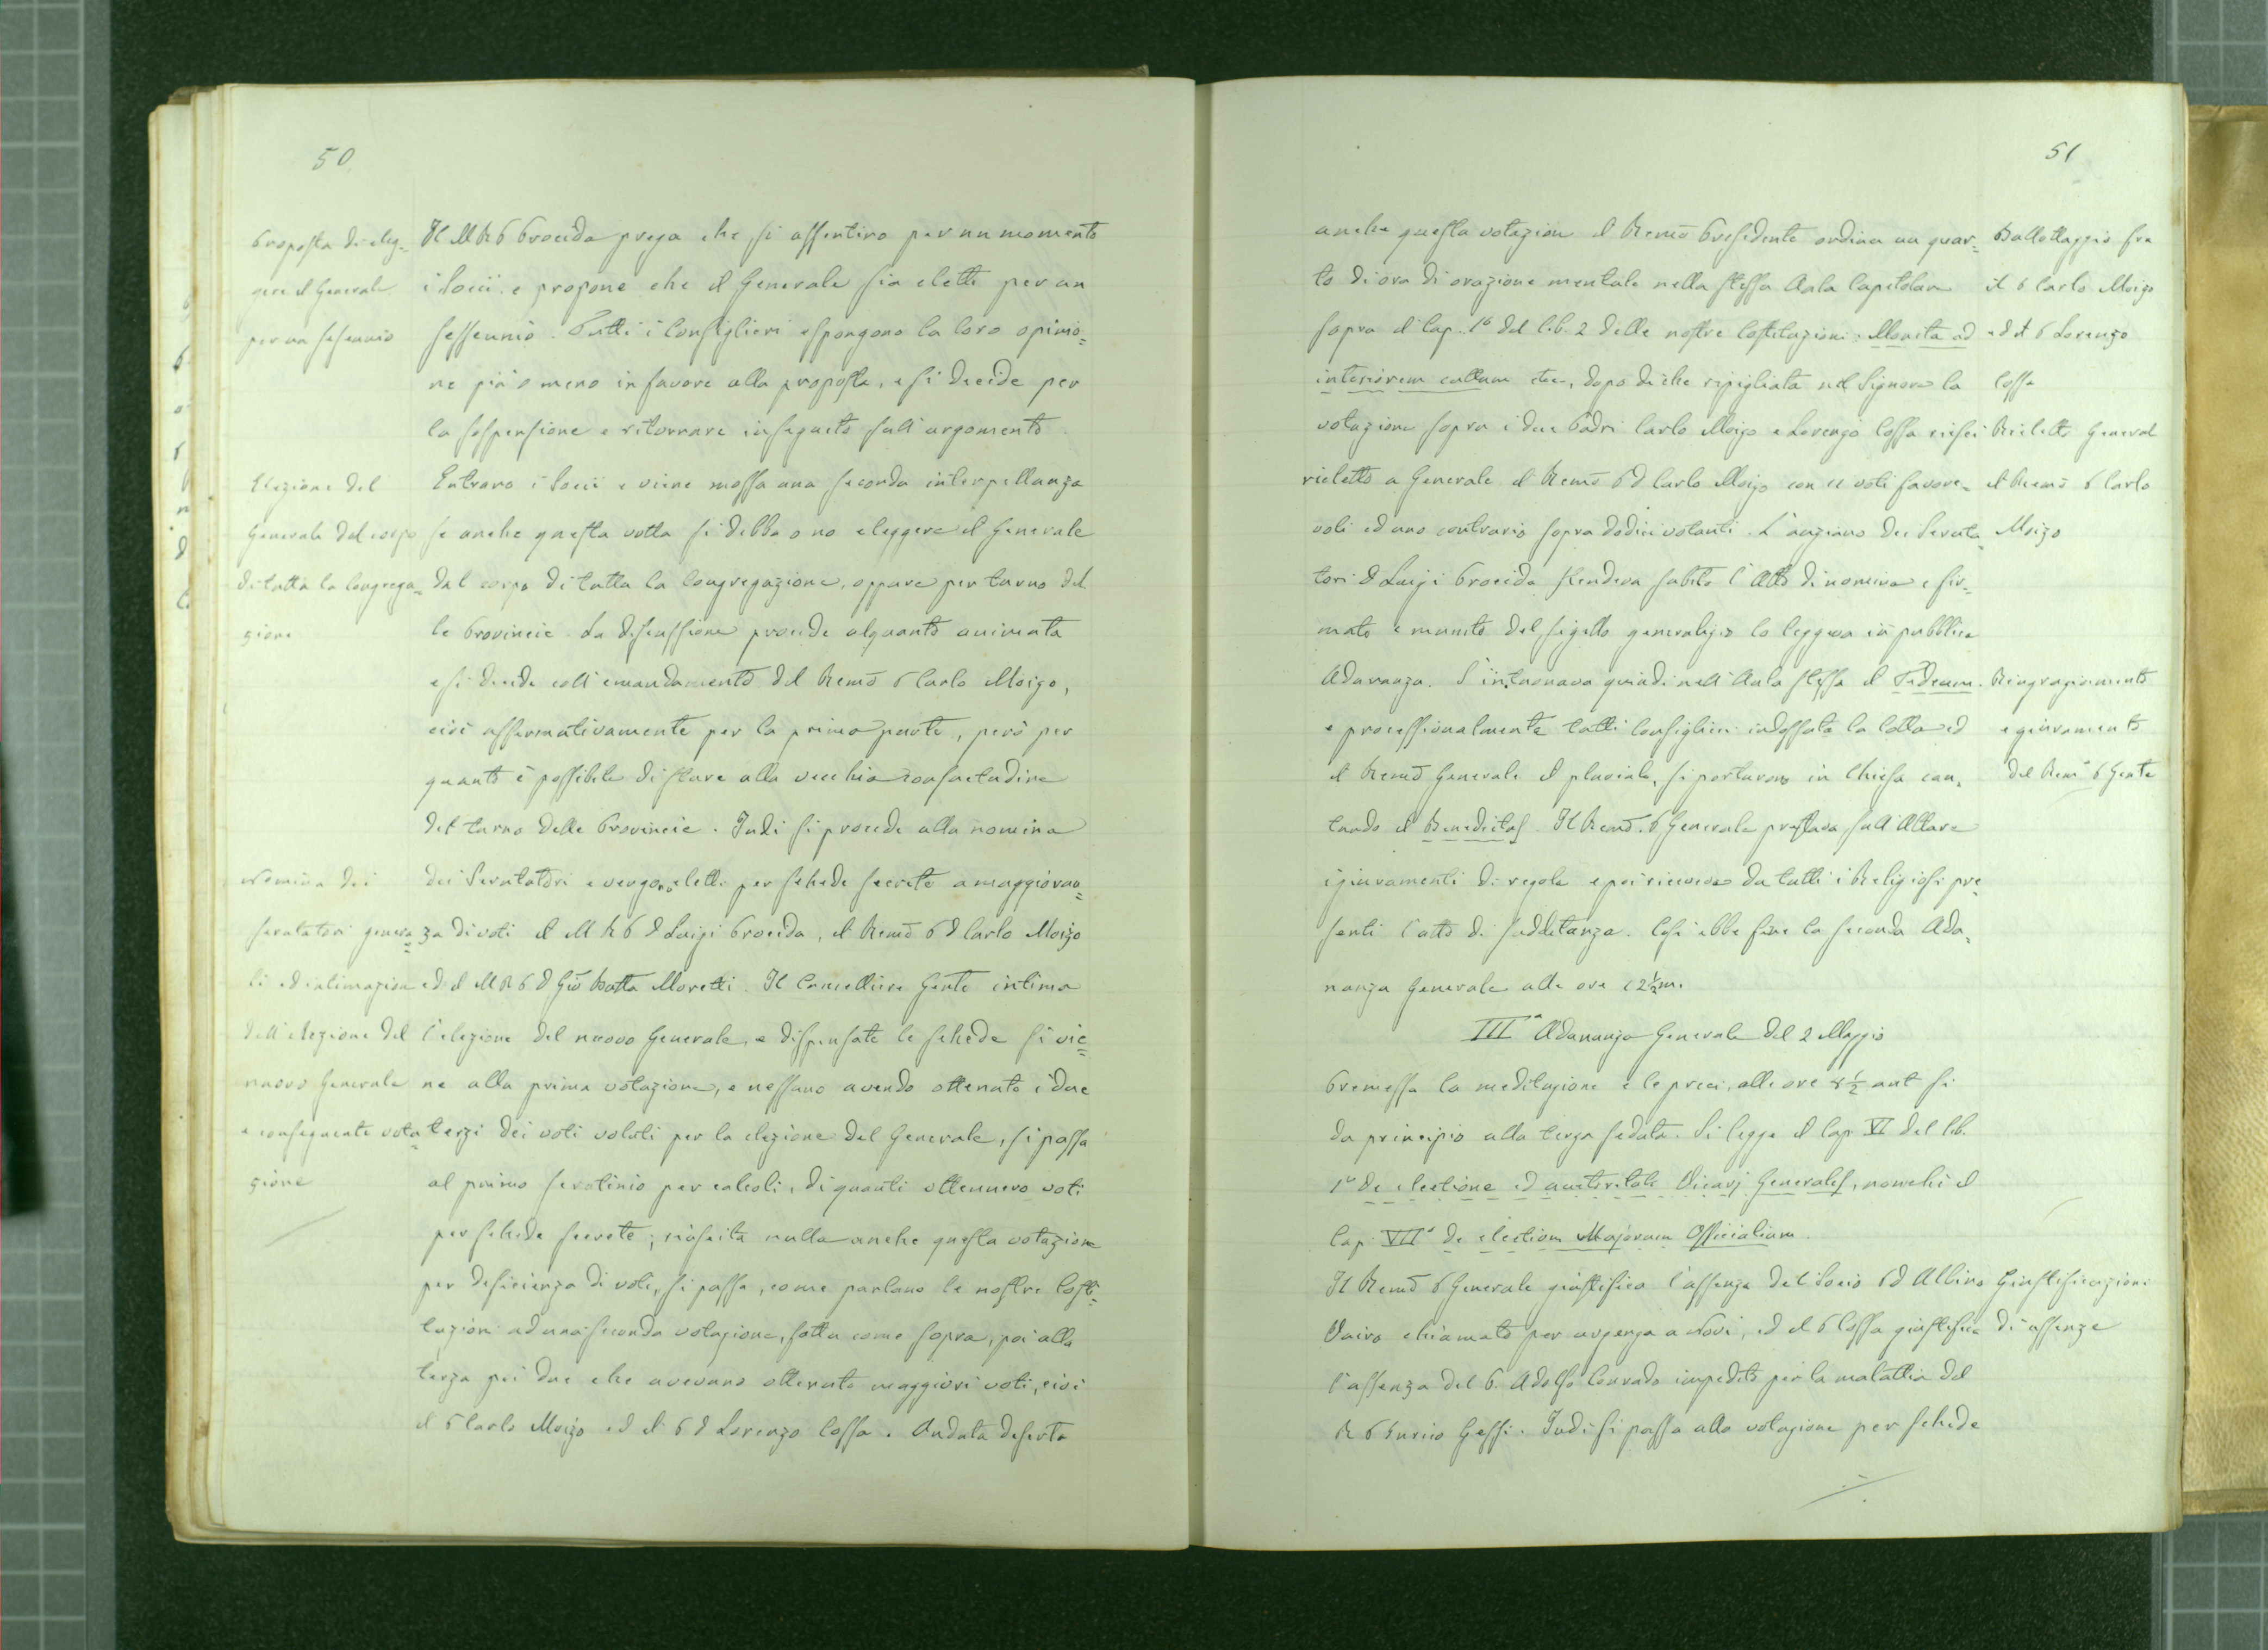 50
Proposta di eleg-
gere il Generale
per un sessennio
Il M R P Procida prega che si assentino per un momento
i Socii e propone che il Generale sia eletto per un
sessennio. Tutti i Consiglieri espongono la loro opinio=
ne più o meno in favore alla proposta, e si decide per
la sospensione e ritornare in seguito sull'argomento.
Elezione del
Generale dal corpo
di tutta la Congrega=
zione
Entrano i Socii e viene mossa una seconda interpellanza
se anche questa volta si debba o no eleggere il Generale
dal corpo di tutta la Congregazione, oppure per turno del
le Provincie. La discussione procede alquanto animata
e si decide coll'emandamento del Remō P Carlo Moizo,
cioè affermativamente per la prima parte, però per
quanto è possibile di stare alla vecchia consuetudine
del turno delle Provincie. Indi si procede alla nomina
Nomina dei
scrutatori genera=
li ed intimazione
dell'elezione del
nuovo Generale
e conseguente vota=
zione
dei Scrutatori e vengono eletti per schede secrete a maggioran=
za di voti il M R P D Luigi Procida, il Remō P D Carlo Moizo
ed il M R P D Giō Batta Moretti. Il Cancelliere Gente intima
l'elezione del nuovo Generale, e dispensate le schede si vie=
ne alla prima votazione, e nessuno avendo ottenuto i due
terzi dei voti voluti per la elezione del Generale, si passa
al primo scrotinio per calcoli, di quanti ottennero voti
per schede secrete; riuscita nulla anche questa votazione
per deficienza di voti, si passa, come parlano le nostre Costi=
tuzioni ad una seconda votazione, fatta come sopra, poi alla
terza pei due che avevano ottenuto maggiori voti, cioè
il P Carlo Moizo ed il P D Lorenzo Cossa. Andata deserta
51
anche questa votazione il Remō Presidente ordina un quar=
to di ora di orazione mentale nella stessa Aula Capitolare
sopra il Cap. 1° del lib. 2 delle nostre Costituzioni: Monita ad
interiorem cultum etc., dopo di che ripigliata nel Signore la
votazione sopra i due Padri Carlo Moizo e Lorenzo Cossa riuscì
rieletto a Generale il Remō P D Carlo Moizo con 11 voti favore=
voli ed uno contrario sopra dodici votanti. L'anziano dei Scruta=
tori D Luigi Procida stendeva subito l'Atto di nomina e fir=
mato e munito del sigillo generalizio lo leggeva in pubblica
Adunanza. S'intuonava quindi nell'Aula stessa il Tedeum.
e processionalmente tutti Consiglieri indossata la Cotta ed
il Remō Generale il pluviale, si portarono in Chiesa can=
tando il Benedictus. Il Remō. P Generale prestava sull'Altare
i giuramenti di regola e poi riceveva da tutti i Religiosi pre=
senti l'atto di sudditanza. Così ebbe fine la seconda Adu=
nanza Generale alle ore 12½ m.
Ballottaggio fra
il P Carlo Moizo
ed il P Lorenzo
Cossa
Rieletto General
il Remō P Carlo
Moizo
Ringraziamento
e giuramento
del Rem° P Gente
IIIª Adunanza Generale del 2 Maggio
Premessa la meditazione e le preci, alle ore 8½ ant si
da principio alla terza seduta. Si legge il Cap VI del lib.
1° De electione ed auctoritate Vicarj Generales, nonchè il
Cap. VII° de election Majorum Officialium.
Il Remō P Generale giustifica l'assenza del Socio P D Albino
Vairo chiamato per urgenza a Novi, ed il P Cossa giustifica
l'assenza del P. Adolfo Conrado impedito per la malattia del
R P Gessi. Indi si passa alla votazione per schede
Giustificazioni
di assenze